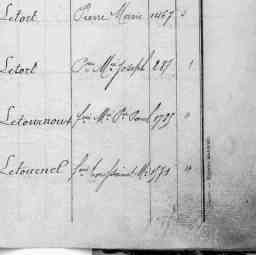 Letort Pierre Marie 1467 3
Letort Pre Mie Joseph 287 1
Letournoux fois Mie Pre Paul 1725 "
Letournel fois Toussaint Mie 1571 "